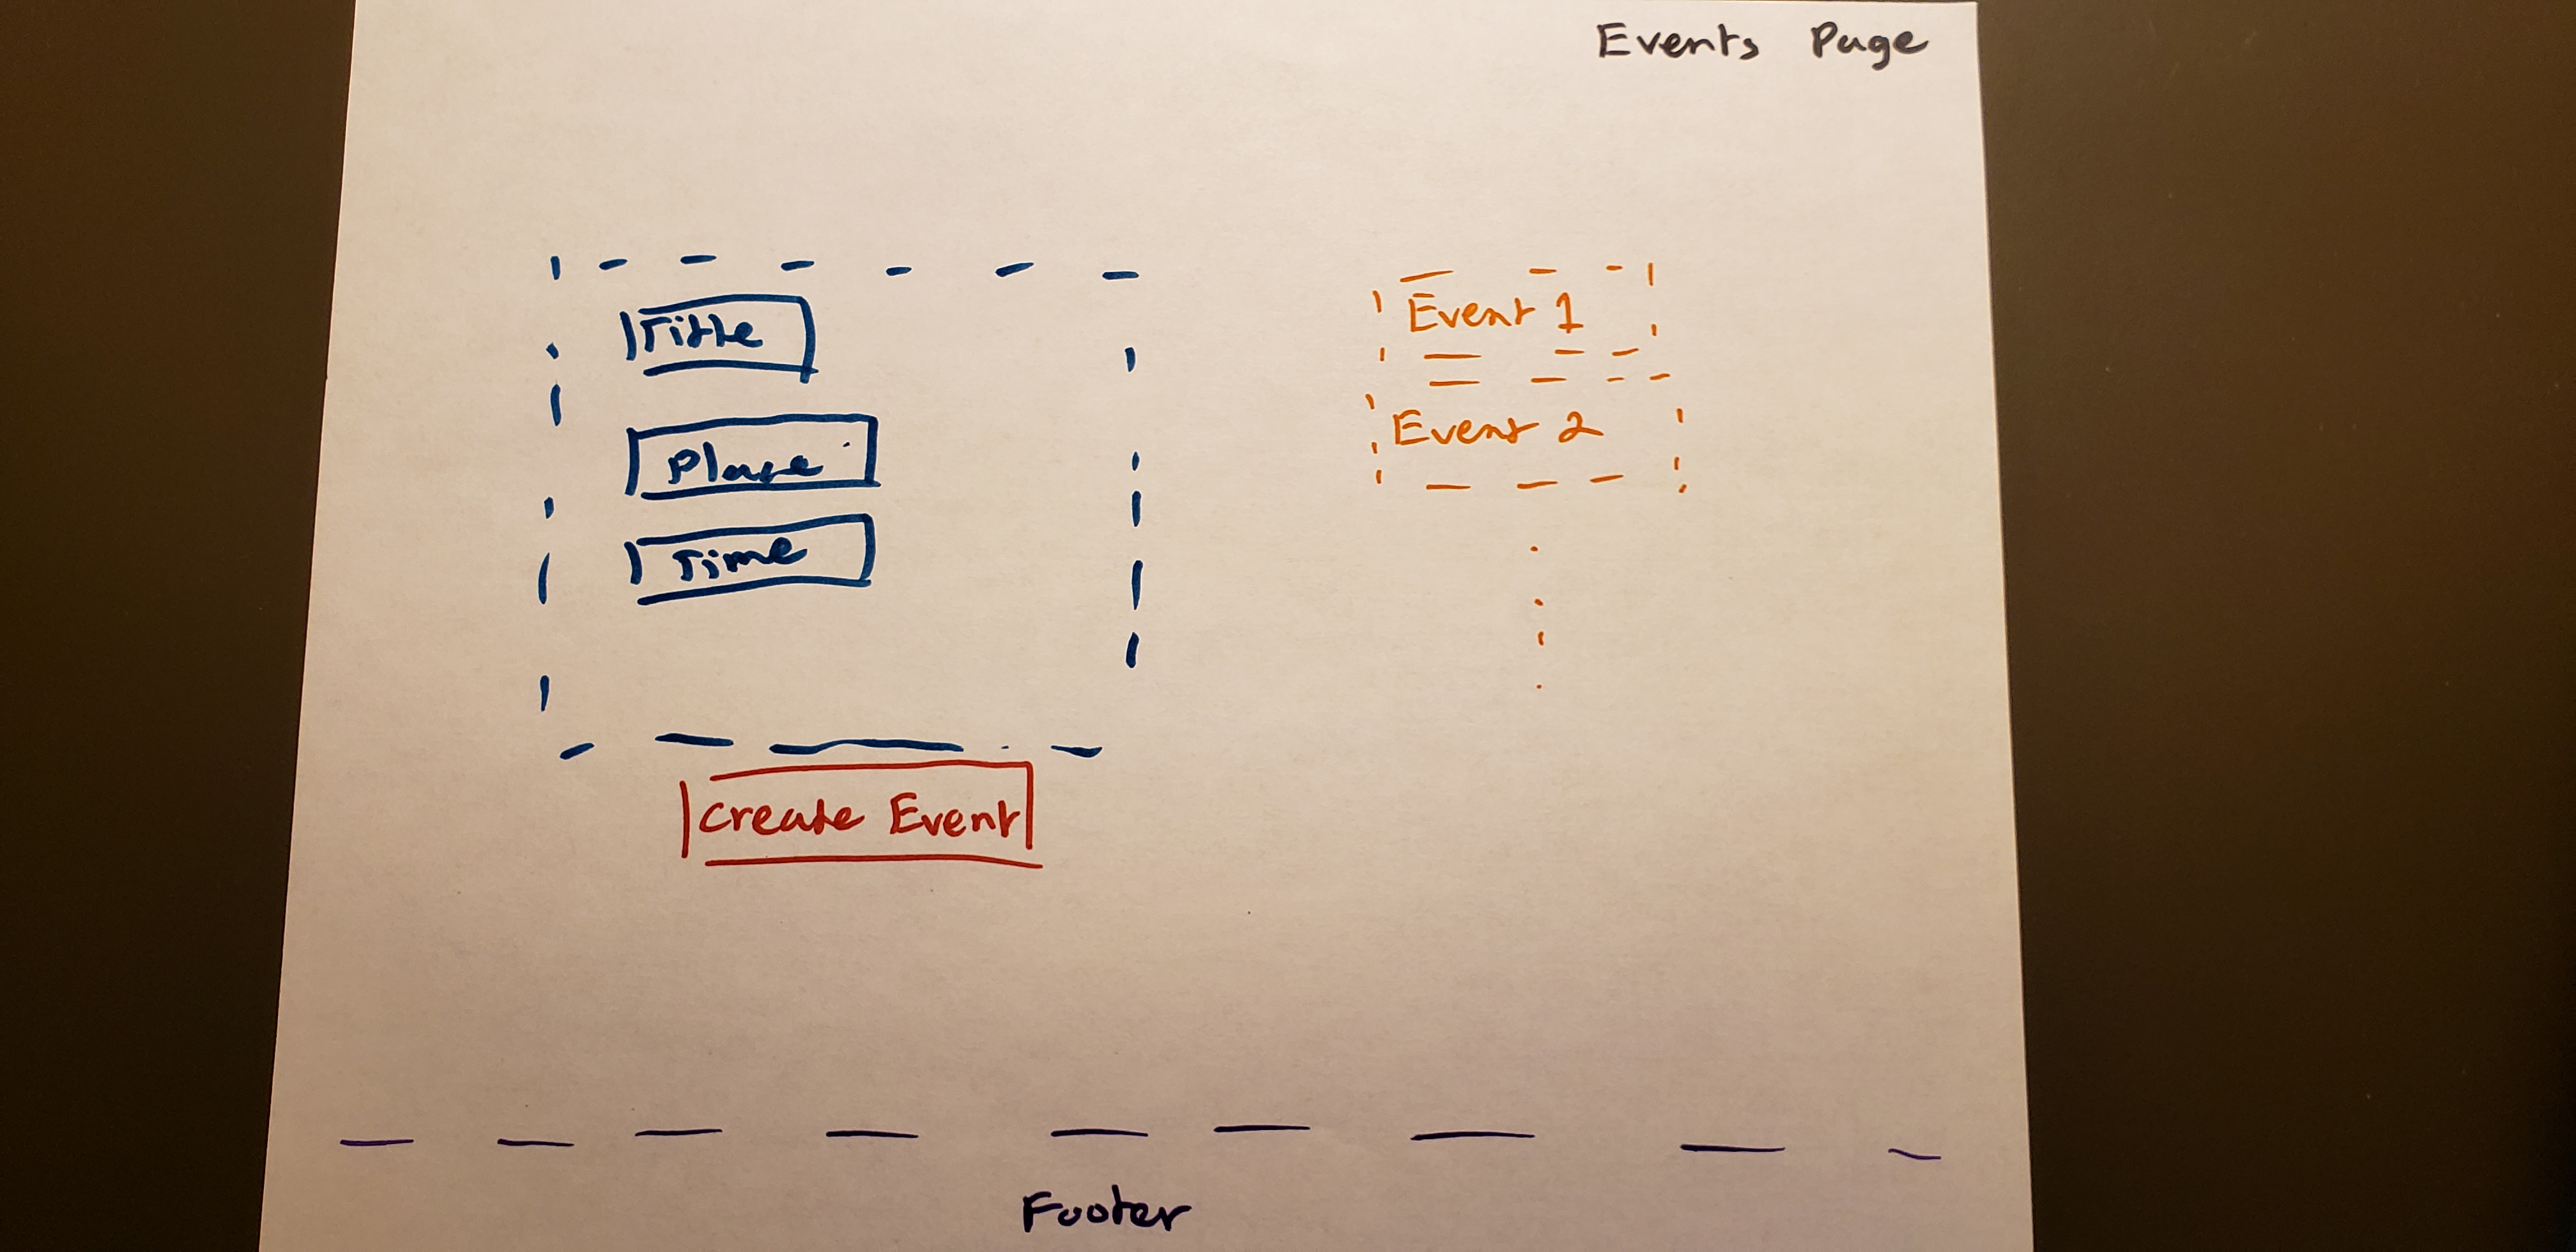 Events Page
Title
Place
Time
Create Event
Event 1
Event 2
Footer